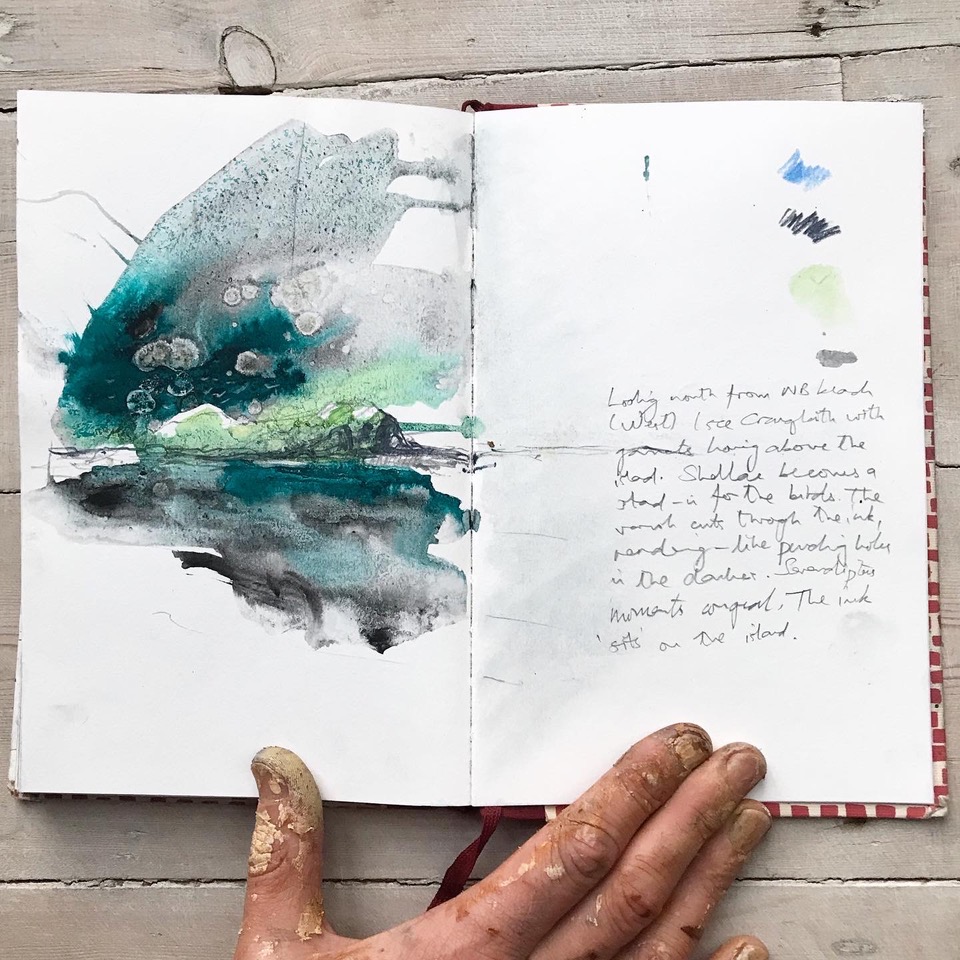 Looking north from NB beach
(West) I see Craigleith with
gannets above the
island. Shellac becomes a
stand-in for the birds. The
varnish cuts through the ink,
like punching holes
in the darker.
moments The ink
'sits' on the island.